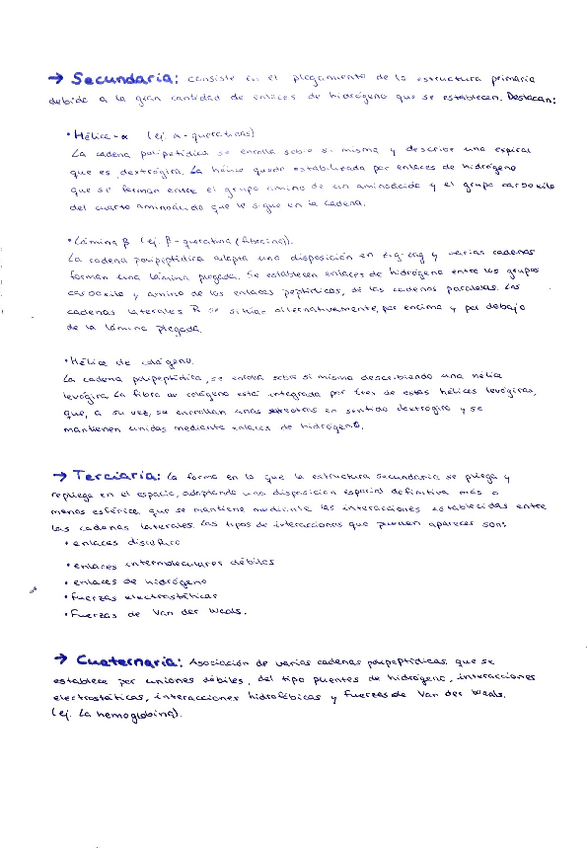 → Secundaria: consiste en el plegamiento de la estructura primaria
debido a la gran cantidad de enlaces de hidrógeno que se establecen. Destacan:
• Hélice-α (ej. α-queratinas)
La cadena polipetídica se enrolla sobre sí misma y describe una espiral
que es dextrógira. La hélice queda estabilizada por enlaces de hidrógeno
que se forman entre el grupo amino de un aminoácido y el grupo carboxilo
del cuarto aminoácido que le sigue en la cadena.
• Lámina β (ej. β-queratina (fibroína).
La cadena polipeptídica adapta una disposición en zig-zag y varias cadenas
forman una lámina plegada. Se establecen enlaces de hidrógeno entre los grupos
carboxilo y amino de los enlaces peptídicos, de las cadenas paralelas. Las
cadenas laterales R se sitúan alternativamente, por encima y por debajo
de la lámina plegada.
• Hélice de colágeno.
La cadena polipeptídica, se enrolla sobre sí misma describiendo una hélice
levógira. La fibra de colágeno está integrada por tres de estas hélices levógiras,
que, a su vez, se enrollan unas en sentido dextrógiro y se
mantienen unidas mediante enlaces de hidrógeno.
→ Terciaria: La forma en la que la estructura secundaria se pliega y
repliega en el espacio, adaptando una disposición espacial definitiva más o
menos esférica, que se mantiene mediante las interacciones establecidas entre
las cadenas laterales. Los tipos de interacciones que pueden aparecer son:
• enlaces disulfuro
• enlaces intermoleculares débiles
• enlaces de hidrógeno
• fuerzas electrostáticas
• Fuerzas de Van der Waals.
→ Cuaternaria: Asociación de varias cadenas polipeptídicas, que se
establece por uniones débiles, del tipo puentes de hidrógeno, interacciones
electrostáticas, interacciones hidrofóbicas y fuerzas de Van der Waals.
(ej. La hemoglobina).